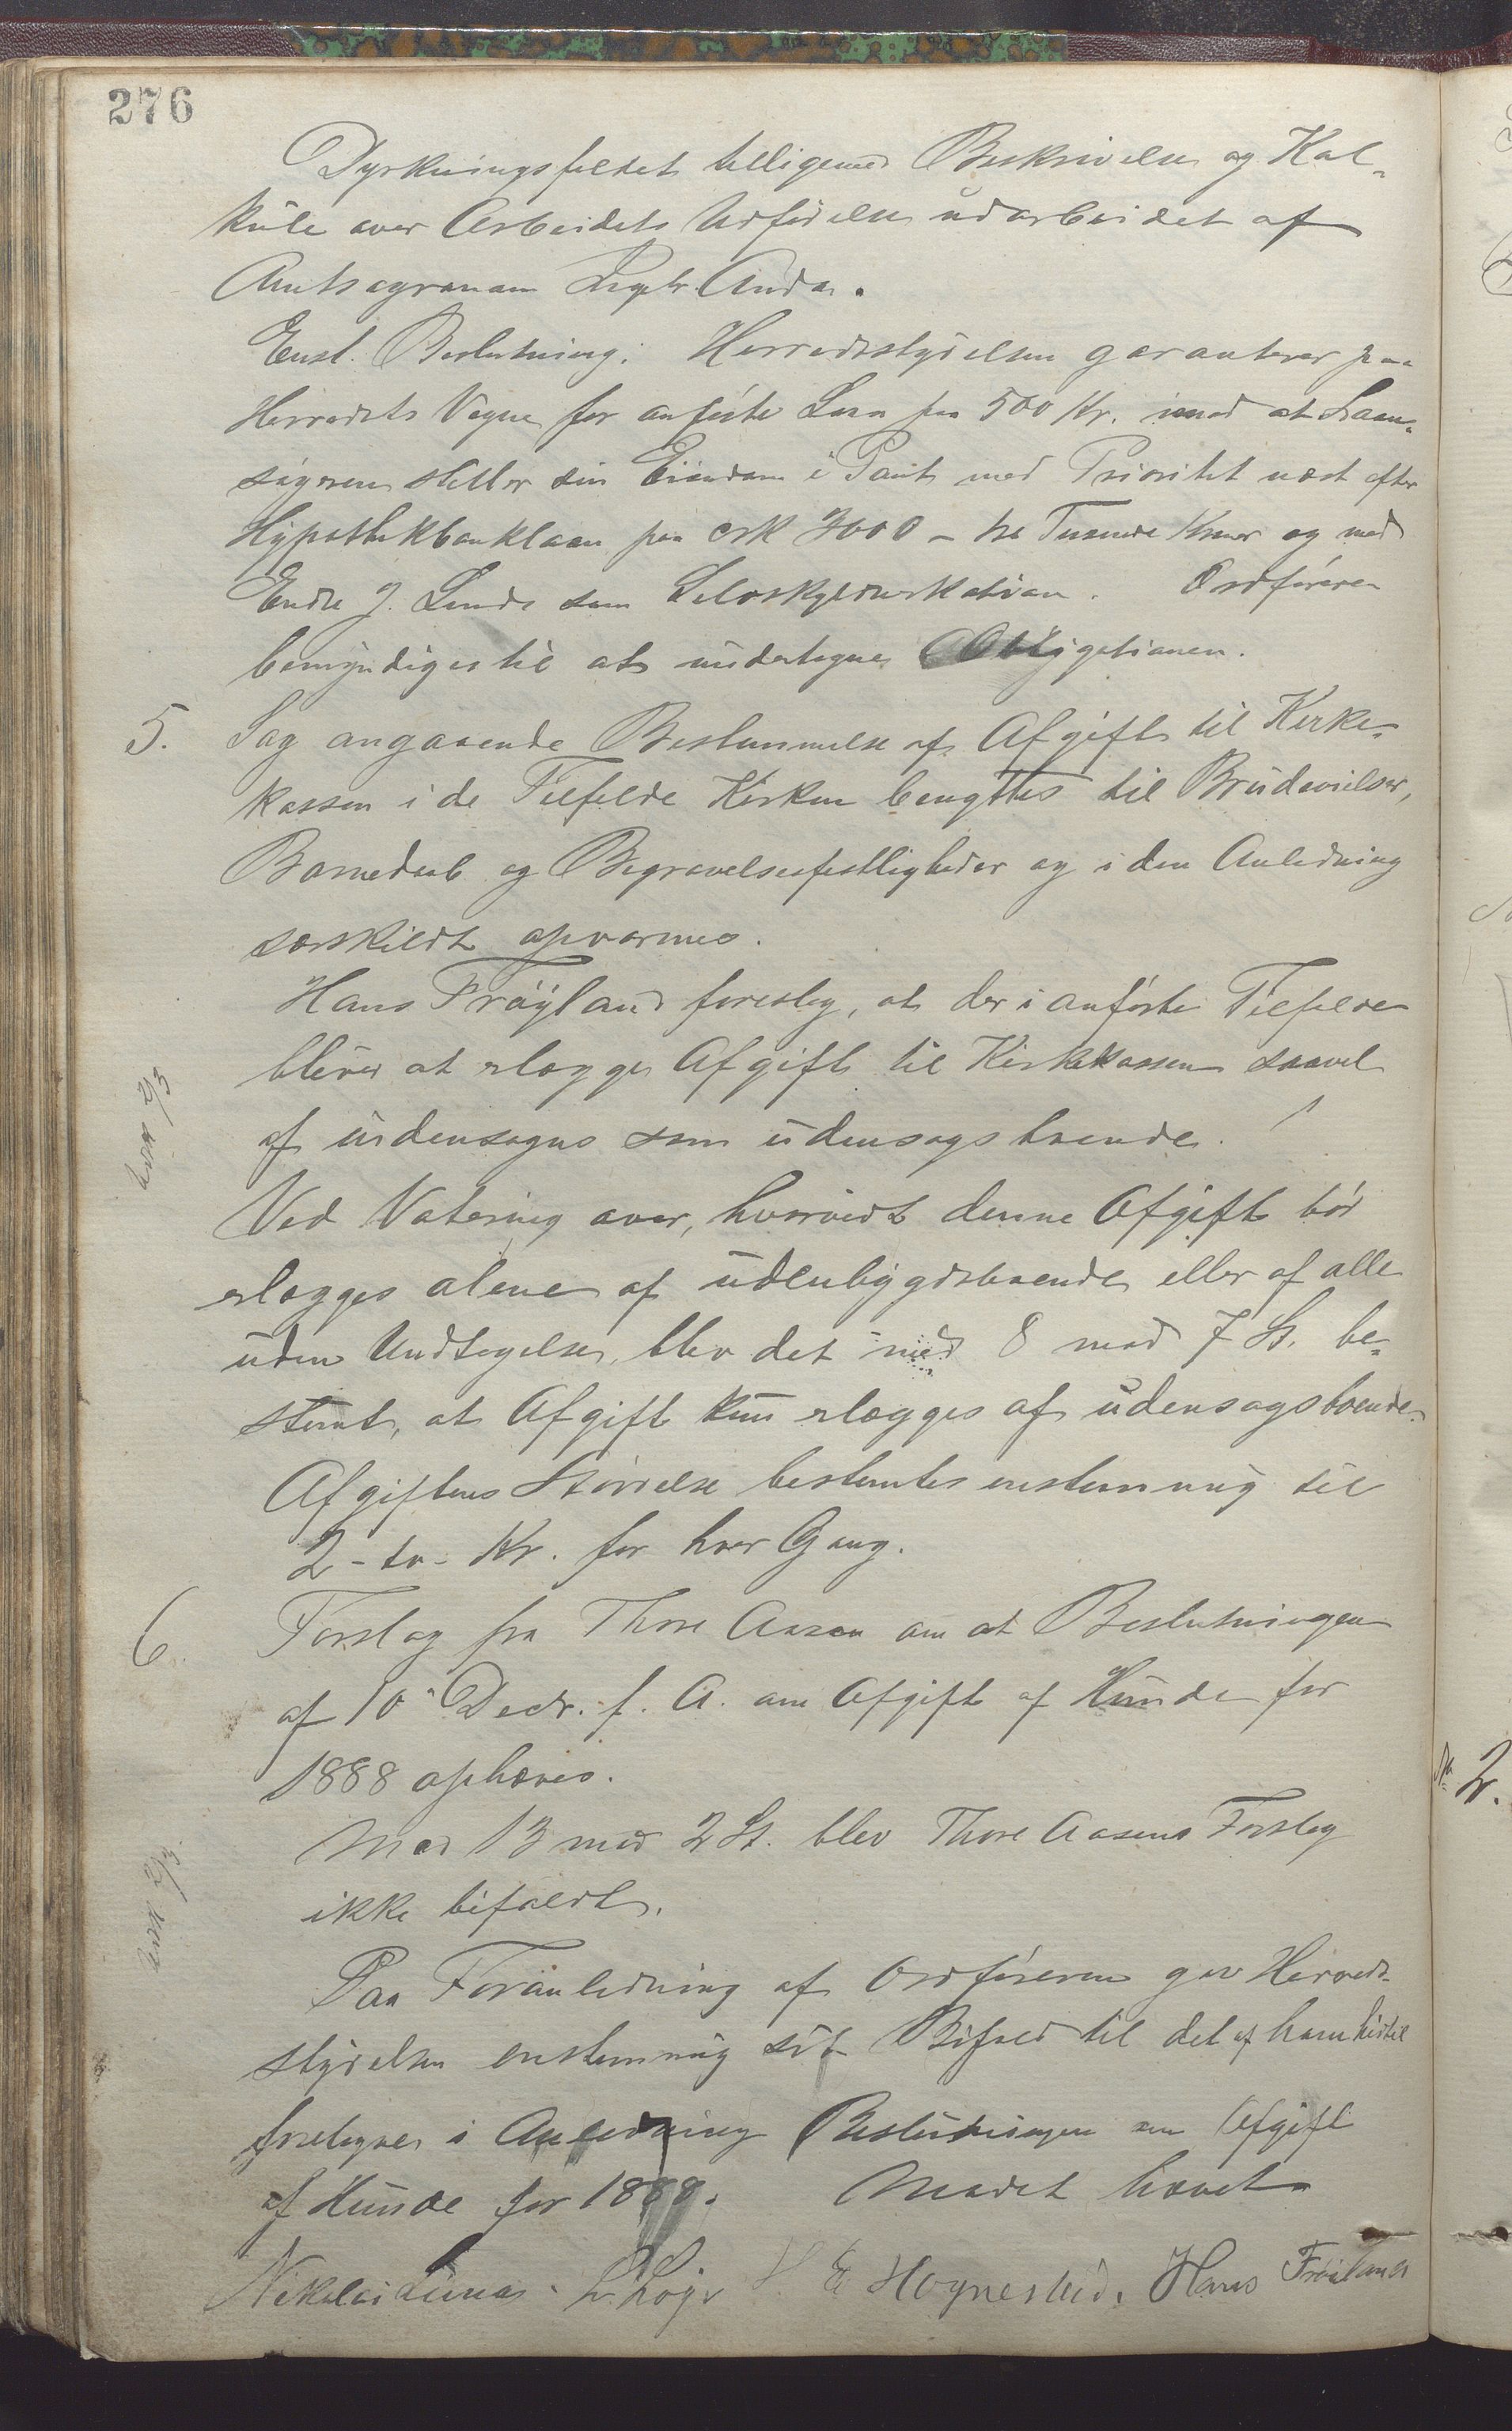 276
Dyrkningsfeltet tilligemed Beskrivelse og Kal-
kule over Arbeidets Udførelse udarbeidet af
Amtsagronom Anda.
Enst. Beslutning: Herredsstyrelsen garanterer paa
Herredets Vegne for anførte Laan paa 500 Kr. imod at Laan-
søgeren stiller sin Eiendom i Pant med Prioritet næst efter
Hypothekbanklaan paa 3000 - tre Tusende Kroner og med
Endre J. Lende som Selvskyldnerkation. Ordføreren
bemyndiges til at undertegne Obligationen.
5. Sag angaaende Bestemmelse af Afgift til Kirke-
kassen i de Tilfælde Kirken benyttes til Brudevielser,
Barnedaab og Begravelsesfestligheder og i den Anledning
særskildt opvarmes.
Hans Frøyland foreslog, at der i anførte Tilfælde
bliver at erlægge Afgift til Kirkekassen saavel
af indensogns som udensogsboende.
Ved Votering over, hvorvidt denne Afgift bør
erlægges alene af udenbygdsboende eller af alle
uden Undtagelse, blev det med 8 mod 7 St. be-
stemt, at Afgift kun erlægges af udensogsboende.
Afgiftens Størrelse bestemtes enstemmig til
2 - to - Kr. for hver Gang.
6. Forslag fra Thore Aasen om at Beslutningen
af 10 Decbr. f. A. om Afgift af Hunde for
1888 ophæves.
Med 13 mod 2 St. blev Thore Aasens Forslag
ikke bifaldt.
Paa Foranledning af Ordføreren gav Herreds-
styrelsen enstemmig sit Bifald til det af ham hidtil
foretagne i Anledning Beslutningen om Afgift
af Hunde for 1888. Mødet hævet
Nikolai Lunas. E Hognestad. Hans Frøiland